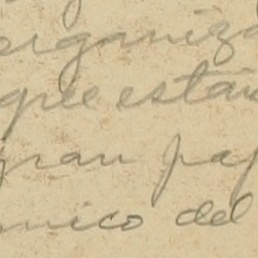 organiza
que están
gran pap
mico del